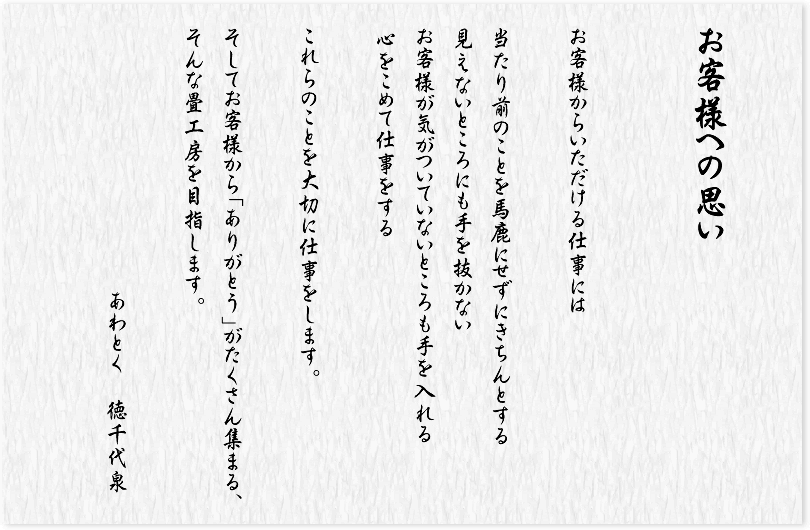 お客様への思い
お客様からいただける仕事には
当たり前のことを馬鹿にせずにきちんとする
見えないところにも手を抜かない
お客様が気がついていないところも手を入れる
心をこめて仕事をする
これらのことを大切に仕事をします。
そしてお客様から「ありがとう」がたくさん集まる、
そんな畳工房を目指します。
あわとく　徳千代泉